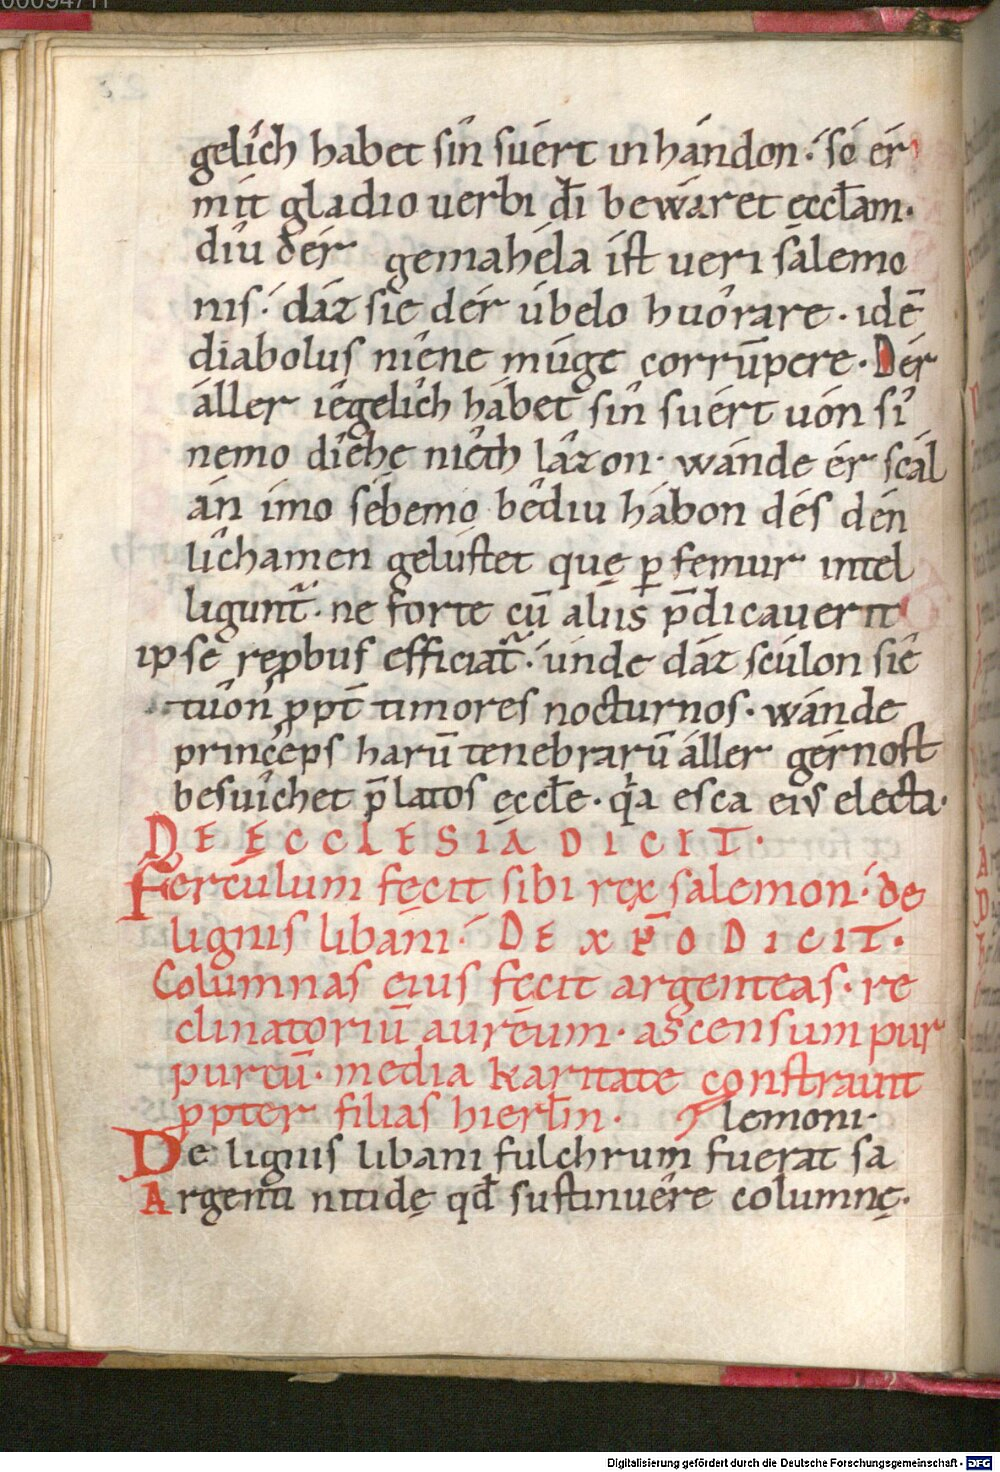 gelîch habet sîn suért in hándon· só ér
mit gladio uerbi dī bewáret ęccl̄am·
díu dér gemahéla ist ueri sálemo
nis· dáz sie dér úbelo huôrare· idē
diabolus nîene múge corrūpere· Dér
áller îegelîch hábet sîn suért uón sî
nemo dîehe nîeth lâzon· wánde ér scál
án imo sébemo bédiu hábon dés dén
lîchamen gelústet quę p̱ femur intel
ligunt̄· ne forte cū aliis p̄dicauerit
ipse repbus efficiat̄· únde dáz scúlon sîe
tûon ppt̄ timores nocturnos· wánde
princeps harū tenebrarū áller gérnost
besuîchet p̄latos ęccl̄e· q́a esca eius electa·
DE ECCLESIA DICIT·
Ferculum fecit sibi rex salemon· de
lignis libani· DE XP̄O DICIT·
Columnas eius fecit argenteas· re
clinatoriū aureum· ascensum pur
pureū· media karitate constrauit
ppter filias hierl̄m· lemoni·
De lignis libani fulchrum fuerat sa
Argenti nitidę qd̄ sustinuére columnę·
Digitalisierung gefördert durch die Deutsche Forschungsgemeinschaft · DFG